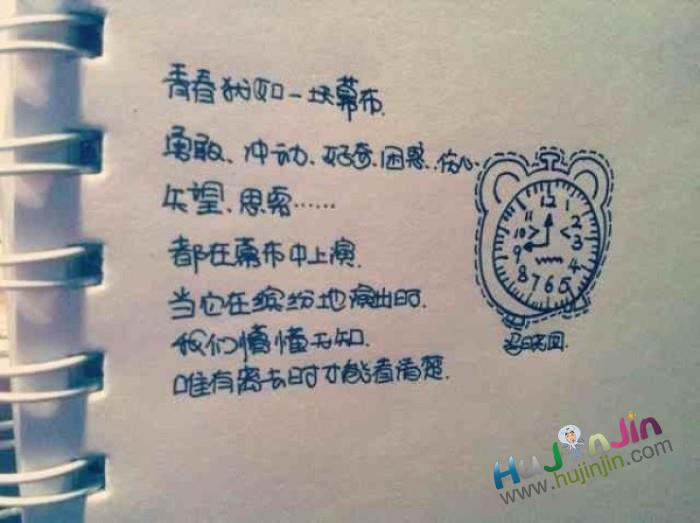 青春犹如一块幕布.
勇敢、冲动、好奇、困惑、伤心、
失望、思索……
都在幕布中上演.
当它在缤纷地演出时.
我们懵懂无知.
唯有离去时才能看清楚.
12
1
2
3
4
5
6
7
8
9
10
11
HuJinJin
www.hujinjin.com